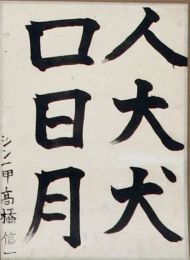 人大犬
口日月
シン一甲 高橋信一